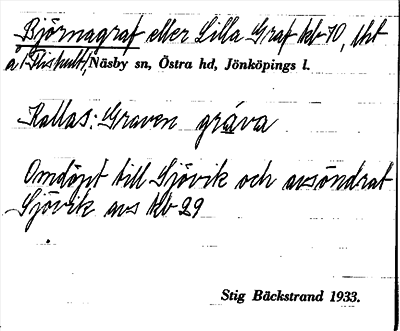 Björnagraf eller Lilla Graf kb 10, tht
å Fliskult, Näsby sn, Östra hd, Jönköpings l.
Kallas: Graven gräva
Omdöpt till Sjövik och avsöndrat
Sjövik avs kb 29
Stig Bäckstrand 1933.